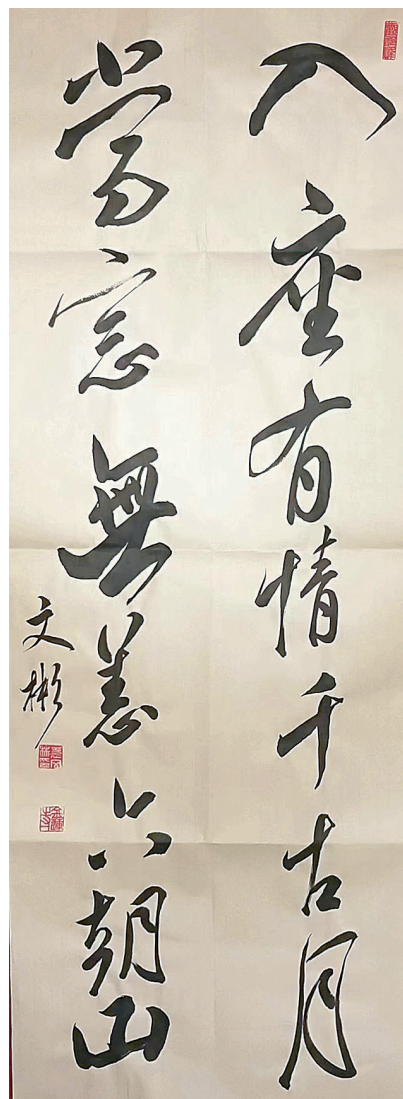 入座有情千古月
當窓無恙六朝山
文彬